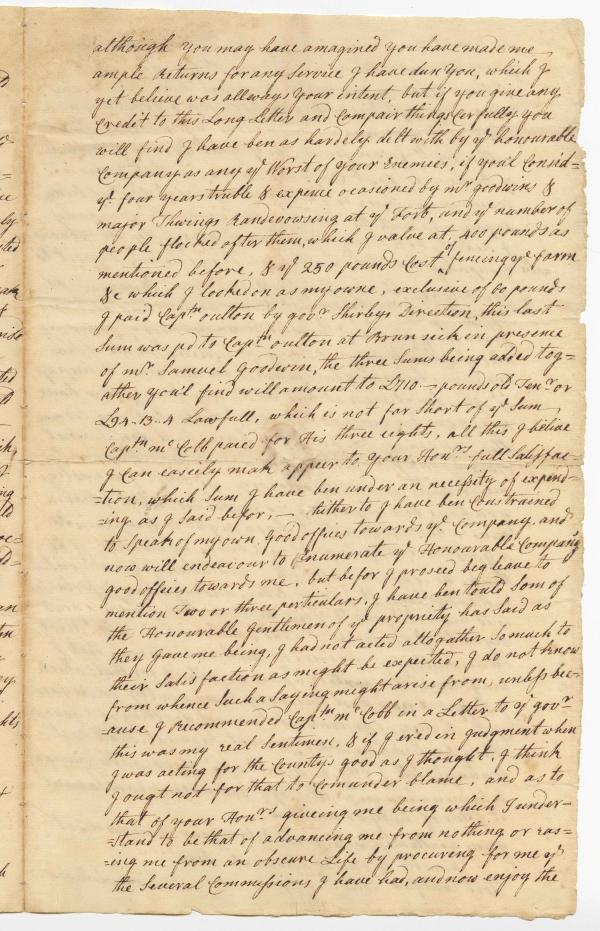 although you may have amagined you have made me
ample returns for any Service I have dun You, which I
yet believe was allways Your intent, but if you give any
Credit to this Long Letter and Compair things Cerfully you
will find I have ben as hardely delt with by yᵉ honourable
Company as any yᵉ Worst of your Enemies, if you'l Consid=
yᵉ four years truble & expence ocasioned by mʳ goodwins &
major Thwings Randevowsing at yᵉ Fort, and yᵉ number of
people flocked after them, which I value at, 400 pounds as
mentioned before, & yᵉ 250 pounds Cost of fencing yᵉ farm
&c which I looked on as my owne, exclusive of 60 pounds
I paid Captⁿ oulton by govʳ Shirleys Direction, this last
Sum was pd to Captⁿ oulton at Brunsick in presence
of mʳ Samuel Goodwin, the three Sums being added tog=
ather you'l find will amount to £710 — pounds old Tenʳ or
£94..13..4 Lawfull, which is not far Short of yᵉ Sum
Captⁿ mᶜ Cobb paied for His three rights, all this I believe
I Can easily mak appeer to Your Honʳˢ full Satisfac=
=tion, which Sum I have ben under an necessity of expend=
=ing as I said befor, — hitherto I have ben Constrained
to Speak of my own good offices towards yᵉ Company, and
now will endeavour to Enumerate yᵉ Honourable Companys
good offeies towards me, but befor I proseed beg leave to
mention Two or three perticulars, I have ben tould Som of
the Honourable Gentlemen of yᵉ propriety has Said as
they gave me being, I had not acted altogather So much to
their Satisfaction as might be expected, I do not Know
from whence Such a Saying might arise from, unless bec=
=ause I Recommended Captⁿ mᶜ Cobb in a Letter to yᵉ govʳ
this was my real Sentimen, & if I ered in Judgment when
I was acting for the Countys good as I thought, I think
I ougt not for that to Com under blame, and as to
that of your Honʳˢ giveing me being which I under=
=stand to be that of advancing me from nothing or ras=
=ing me from an obscure Life by procuring for me yᵉ
the Several Commissions I have had, and now enjoy the